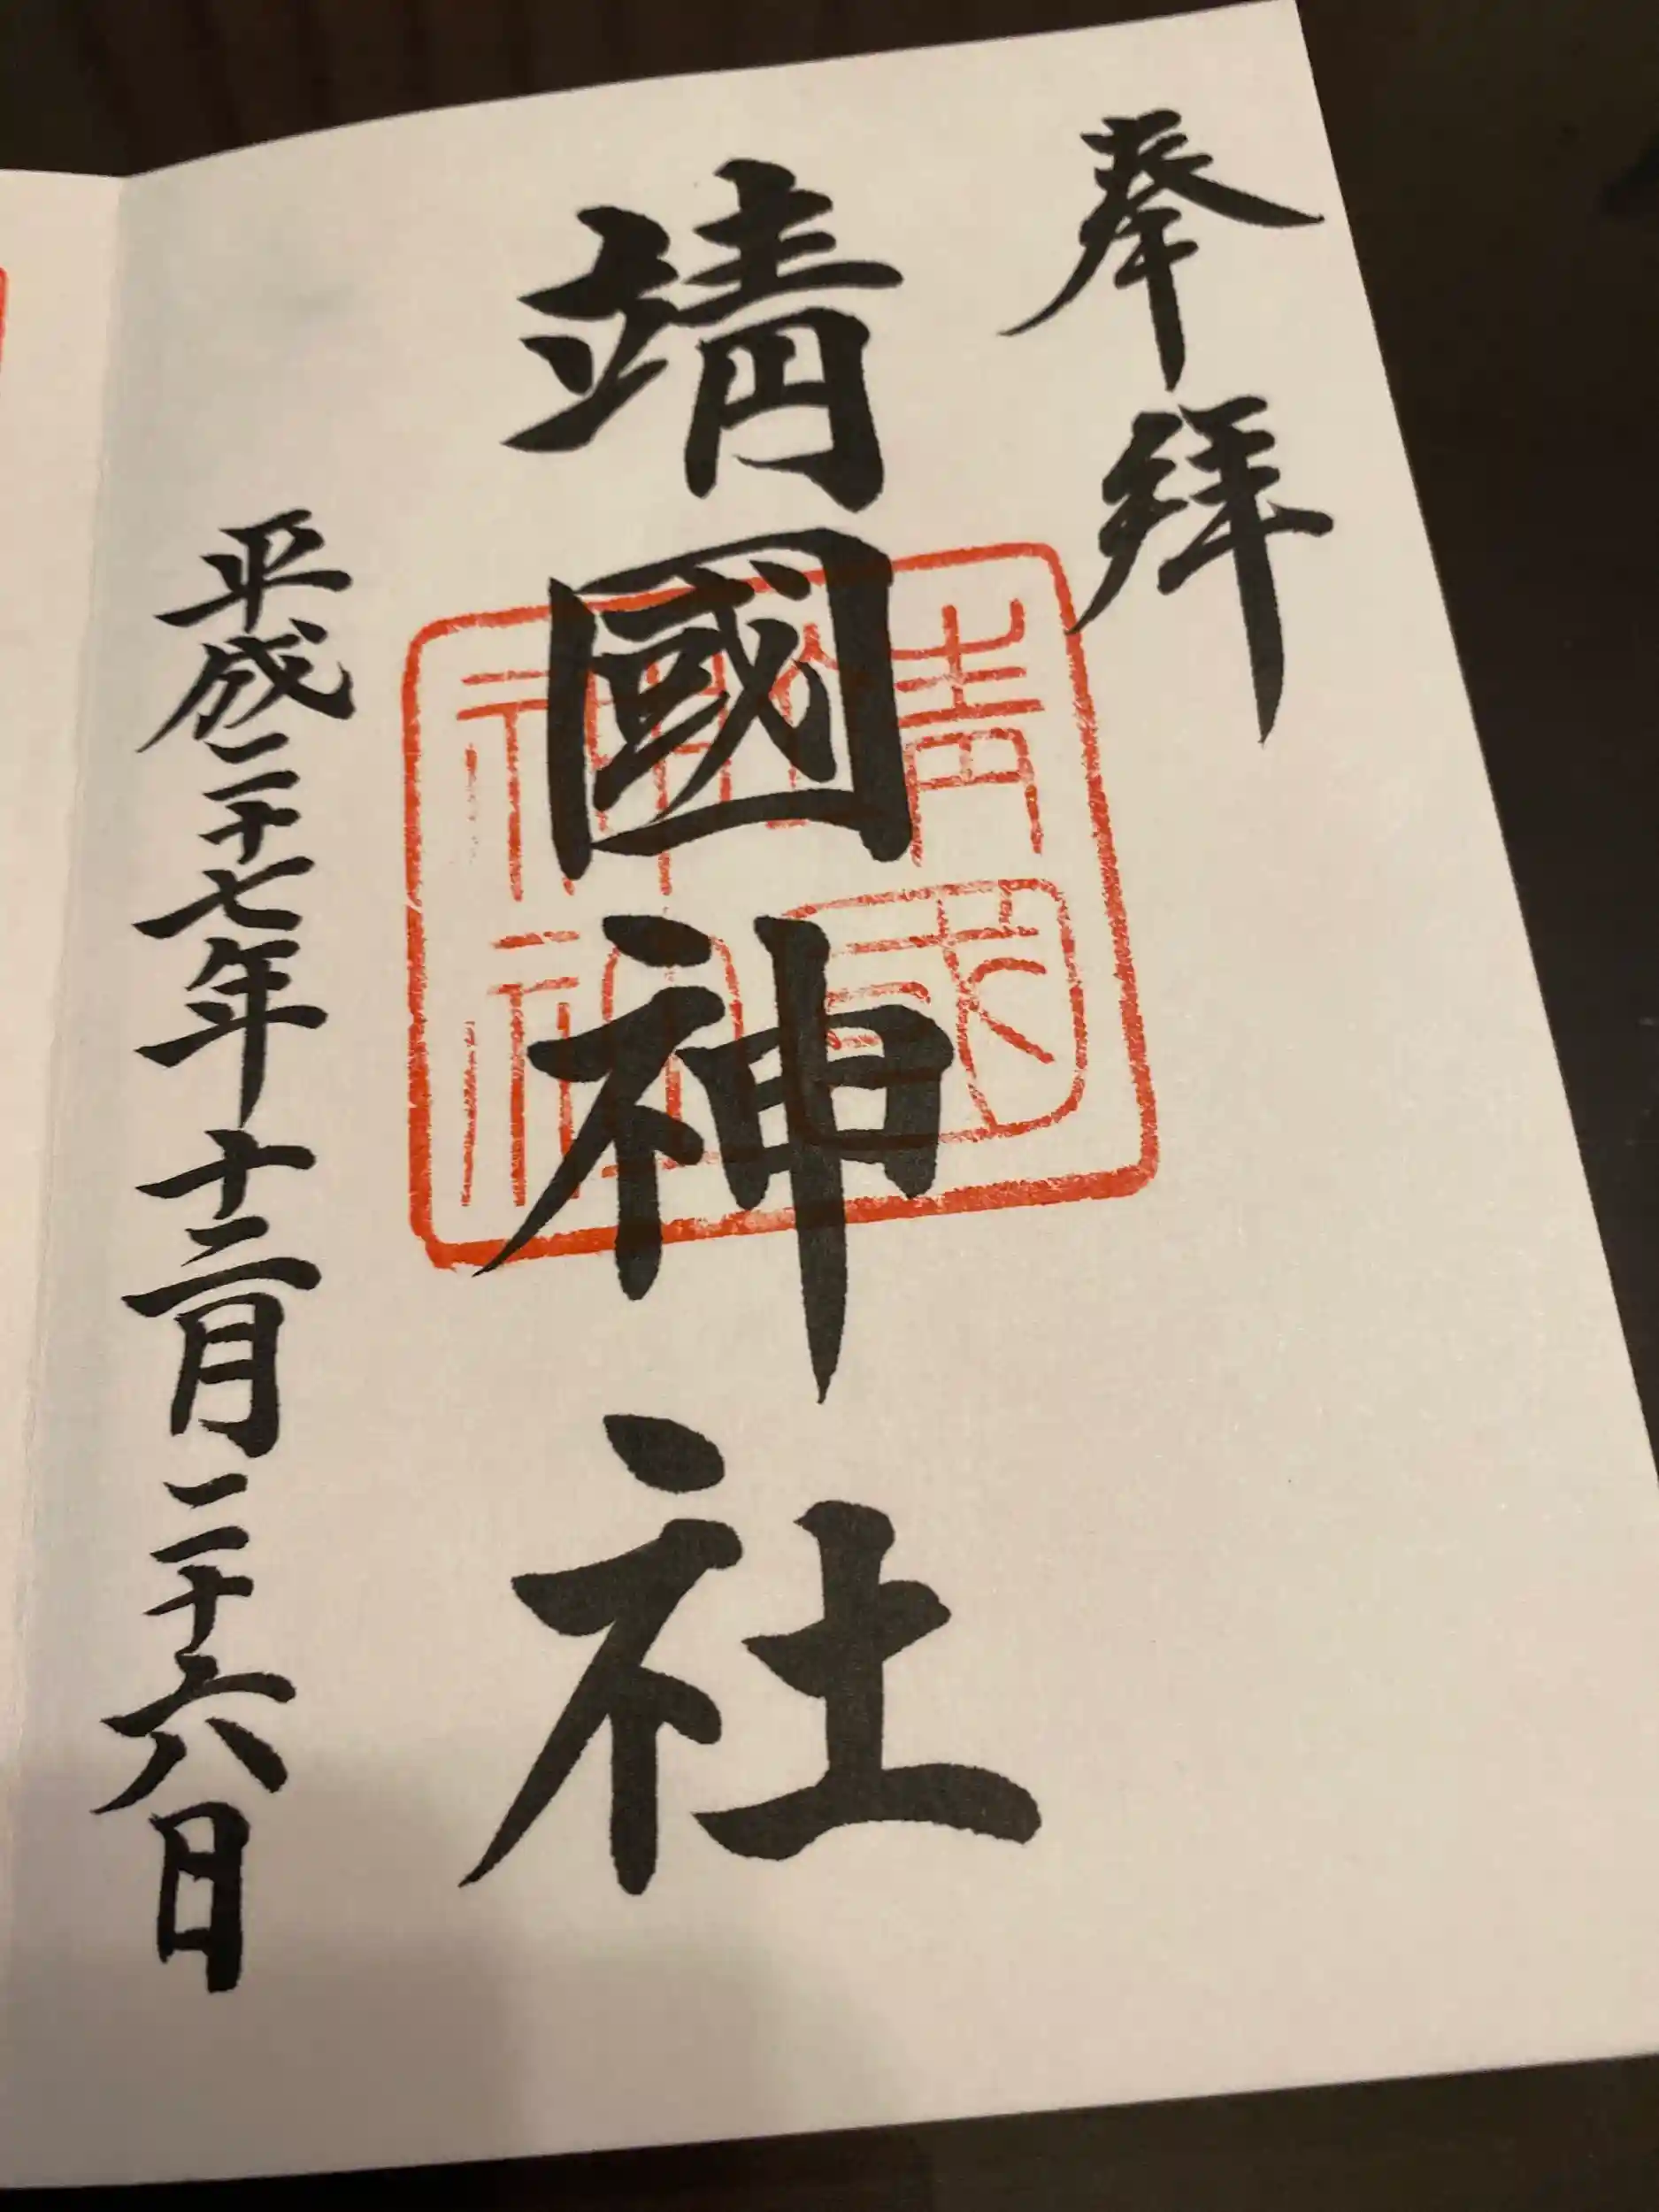 奉拝
靖國神社
平成二十七年十二月二十六日
靖國
神社